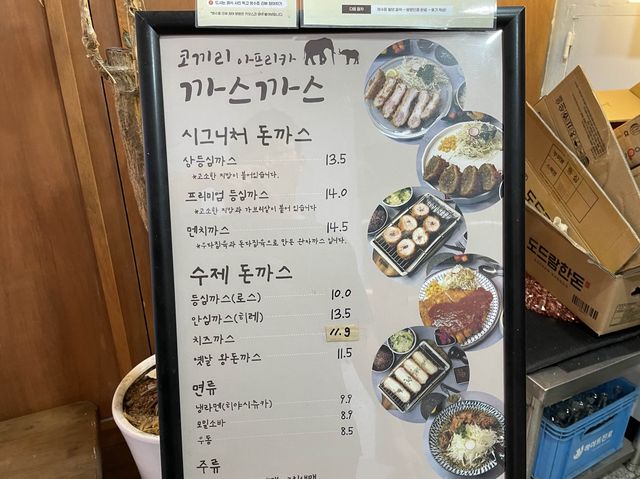 코끼리 아프리카
까스까스
시그니처 돈까스
상등심까스 13.5
*고소한 지방이 붙어있습니다.
프리미엄 등심까스 14.0
*고소한 지방과 가브리살이 붙어 있습니다
멘치까스 14.5
*우자짐육과 돈자짐육으로 만든 완자까스 입니다.
수제 돈까스
등심까스(로스) 10.0
안심까스(히레) 13.5
치즈까스 11.9
옛날 왕돈까스 11.5
면류
냉라멘(히야시츄카) 9.9
모밀소바 8.9
우동 8.5
주류
도드람한돈
하이트진로